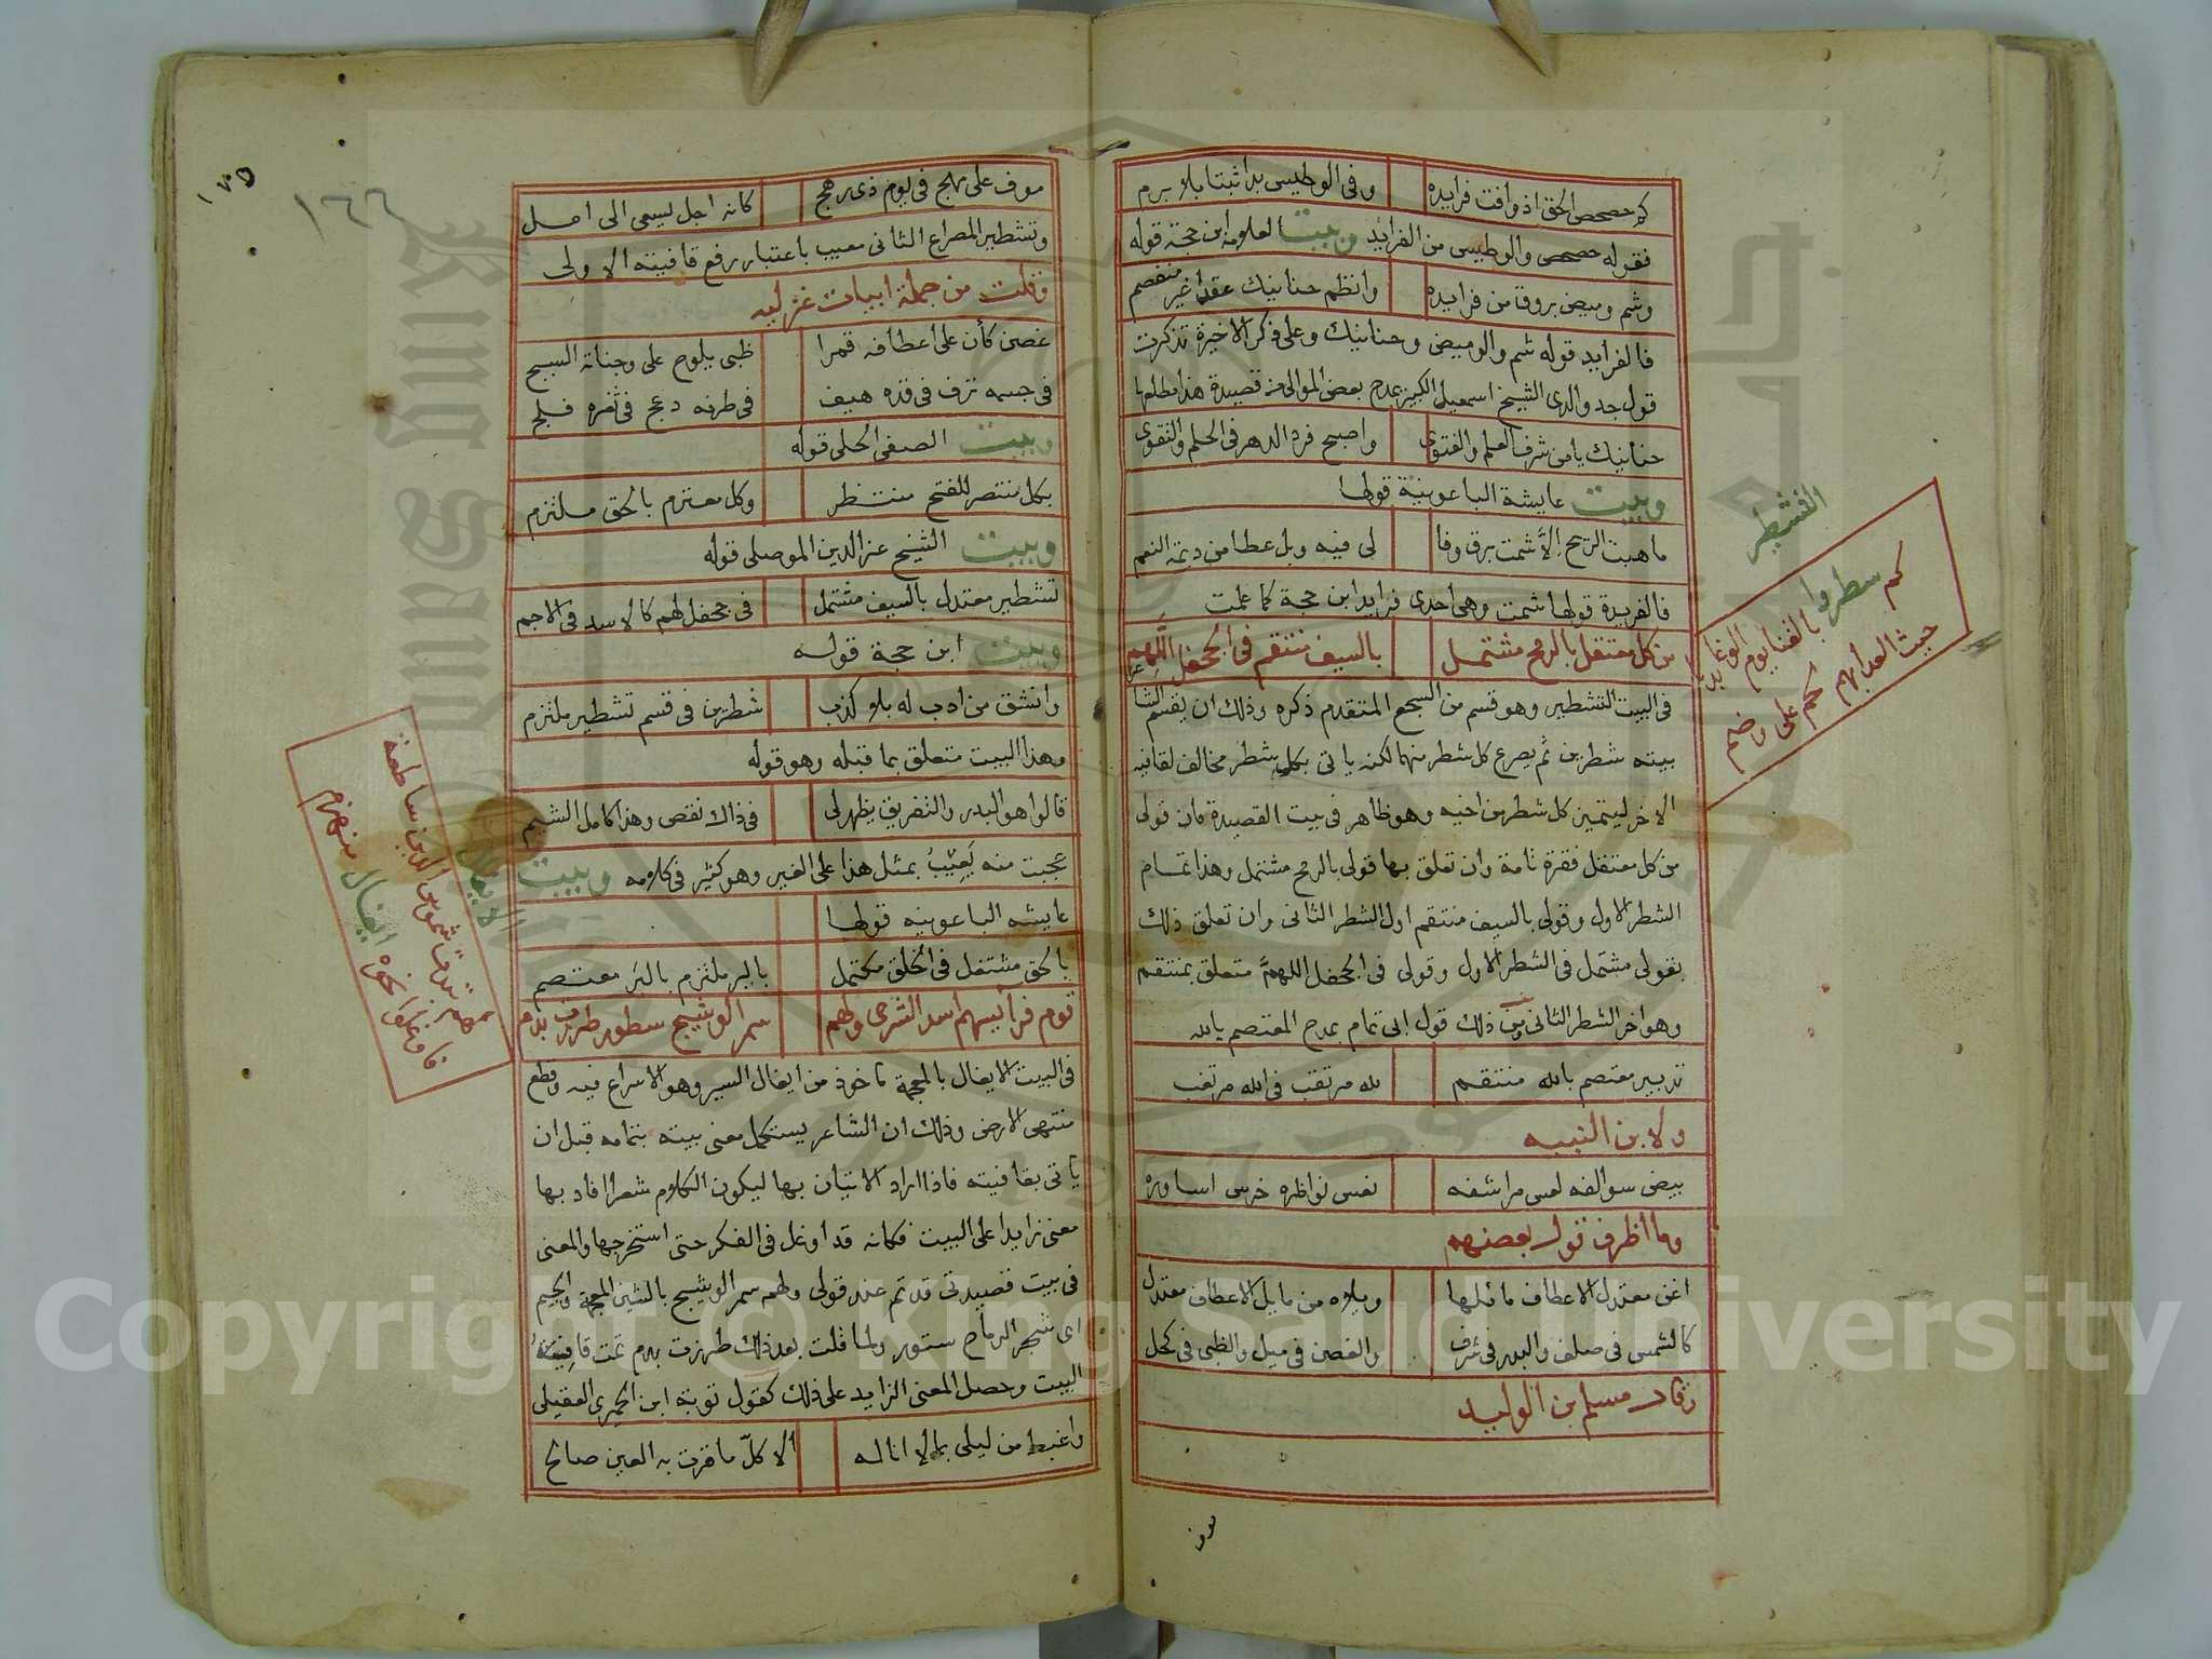 كم حصحص الحق اذ وافت فرايده وفى الوطيس بدا ثبتا بلا برم
فقوله حصحص والوطيس من الفرايد وبيت العلامة ابن حجة قوله
وشم وميض بروق من فرايده وانظم حنانيك عقدا غير منفصم
فالفرايد قوله شم والوميض وحنانيك وعلى ذكر الاخيرة تذكرت
قول جد والدى الشيخ اسمعيل الكبير يمدح بعض الموالى من قصيدة هذا مطلعها
حنانيك يا من شرف العلم والفتوى واصبح فرد الدهر فى الحلم والتقوى
وبيت عايشة الباعونية قولها
ما هبت الريح الا شمت برق وفا لى فيه وبل عطا من ديمة النعم
فالفريدة قولها شمت وهى احدى فرايد ابن حجة كما علمت
من كل معتقل بالرمح مشتمل بالسيف منتقم فى الجحفل اللهم
فى البيت التشطير وهو قسم من السجع المتقدم ذكره وذلك ان يقسم الشاعر
بيته شطرين ثم يصرع كل شطر منها لكنه ياتى بكل شطر مخالف لقافية
الاخر ليتميز كل شطر من اخيه وهو ظاهر فى بيت القصيدة فان قولى
من كل معتقل فقرة تامة وان تعلق بها قولى بالرمح مشتمل وهذا تمام
الشطر الاول وقولى بالسيف منتقم اول الشطر الثانى وان تعلق ذلك
بقولى مشتمل فى الشطر الاول وقولى فى الجحفل اللهم متعلق بمنتقم
وهو اخر الشطر الثانى ومن ذلك قول ابى تمام يمدح المعتصم بالله
تدبير معتصم بالله منتقم لله مرتقب فى الله مرتغب
ولابن النبيه
بيض سوالفه لعس مراشفه نعس نواظره خرس اساوره
وما اظرف قول بعضهم
اغن معتدل الاعطاف مائلها ويلاه من مايل الاعطاف معتدل
كالشمس فى صلف والبدر فى شرف والغصن فى ميل والظبى فى كحل
وقال مسلم بن الوليد
موف
التشطير
كم سطروا بالقنا يوم الوغا
جيث العدا بهم لحم على وضم
١٧٥
١٦٦
موف على مهج فى يوم ذى رهج كانه اجل يسعى الى امل
وتشطير المصراع الثانى معيب باعتبار رفع قافيته الاولى
وقلت من جملة ابيات غزليه
غصن كأن على اعطافه قمرا ظبى يلوح على وجناته السبج
فى جسمه ترف فى قده هيف فى طرفه دعج فى ثغره فلج
وبيت الصفى الحلى قوله
بكل منتصر للفتح منتظر وكل معتزم بالحق ملتزم
وبيت الشيخ عز الدين الموصلى قوله
تشطير معتدل بالسيف مشتمل فى جحفل لهم كالاسد فى الاجم
وبيت ابن حجة قوله
وانشق من ادب له بلا كذب شطرين فى قسم تشطير ملتزم
وهذا البيت متعلق بما قبله وهو قوله
قالوا هو البدر والتفريق يظهر لى فى ذاك نقص وهذا كامل الشيم
عجبت منه يعيب بمثل هذا على الغير وهو كثير فى كلامه وبيت
عايشه الباعونيه قولها
بالحق مشتغل فى الخلق مكتمل بالبر ملتزم بالبر معتصم
قوم فرائسهم اسد الشرى ولهم سمر الوشيج سطور طرزت بدم
فى البيت الايغال بالمعجمة ماخوذ من ايغال السير وهو الاسراع فيه وقطع
منتهى الارض وذلك ان الشاعر يستكمل معنى بيته بتمامه قبل ان
ياتى بقافيته فاذا اراد الاتيان بها ليكون الكلام شعرا افاد بها
معنى زايدا على البيت فكانه قد اوغل فى الفكر حتى استخرجها والمعنى
فى بيت قصيدتى قد تم عند قولى ولهم سمر الوشيج بالشين المعجمة والجيم
اى شجر الرماح ستور ولما قلت بعد ذلك طرزت بدم تمت قافية
البيت وحصل المعنى الزايد على ذلك كقول توبة ابن الحميرى العقيلى
واغبط من ليلى بما لا اناله الا كل ما قرت به العين صالح
الايغال
شموس الدين ساطعة
فاوغلوا نحوه ايغال منهزم
Copyright © King Saud University